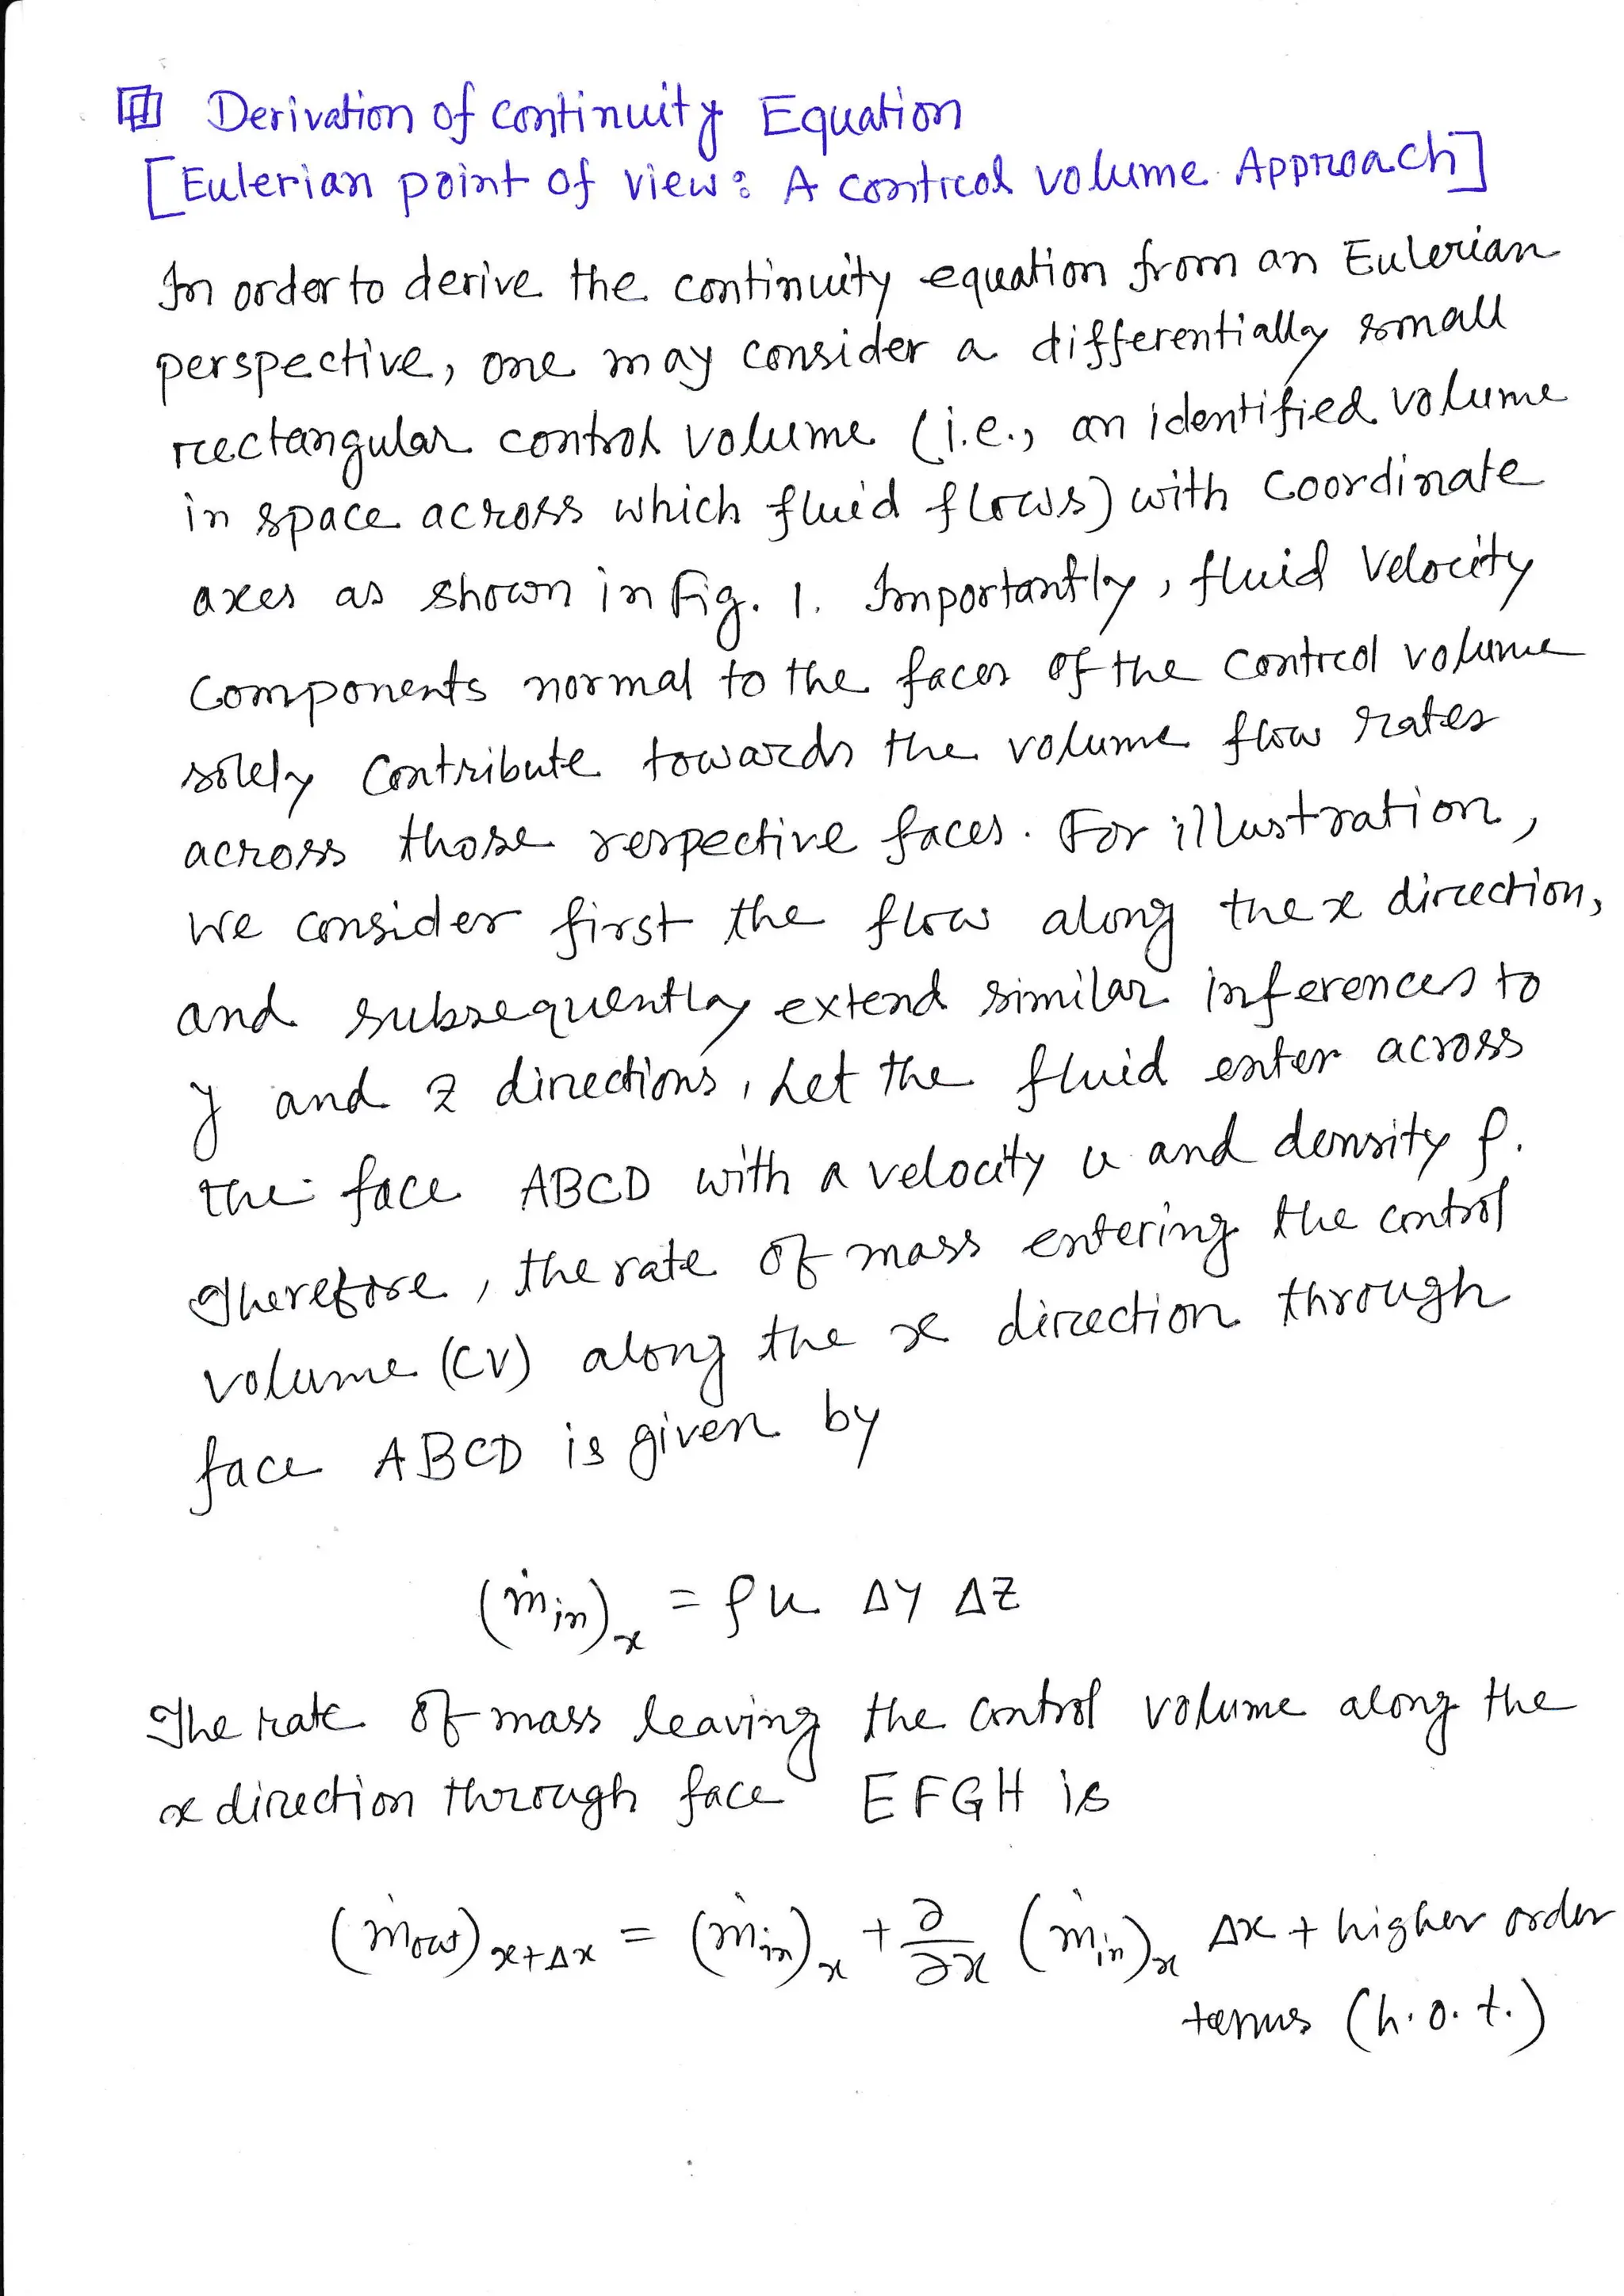 Derivation of continuity Equation
[Eulerian point of view: A control volume Approach]
In order to derive the continuity equation from an Eulerian
perspective, one may consider a differentially small
rectangular control volume (i.e., an identified volume
in space across which fluid flows) with coordinate
axes as shown in Fig. 1. Importantly, fluid velocity
components normal to the faces of the control volume
solely contribute towards the volume flow rates
across those respective faces. For illustration,
we consider first the flow along the x direction,
and subsequently extend similar inferences to
y and z directions. Let the fluid enter across
the face ABCD with a velocity u and density ρ.
Therefore, the rate of mass entering the control
volume (CV) along the x direction through
face ABCD is given by
(ṁ_in)_x = ρu Δy Δz
The rate of mass leaving the control volume along the
x direction through face EFGH is
(ṁ_out)_x+Δx = (ṁ_in)_x + ∂/∂x (ṁ_in)_x Δx + higher order
terms (h.o.t.)